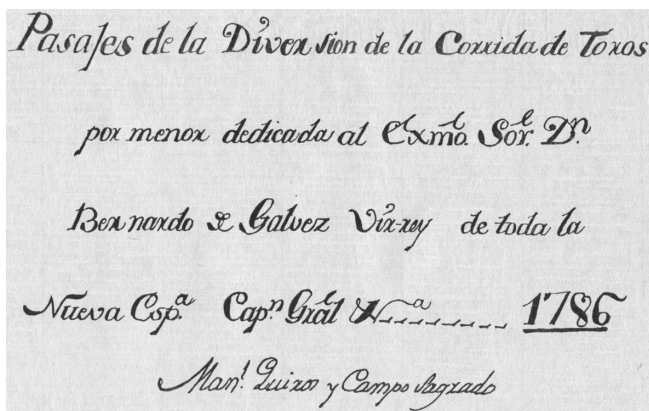 Pasajes de la Diversion de la Corrida de Toros
por menor dedicada al Exmo. Sor. Dn.
Bernardo de Galvez Vir-rey de toda la
Nueva Esp.a Cap.n Gral 1786
Man.l Quiros y Campo Sagrado